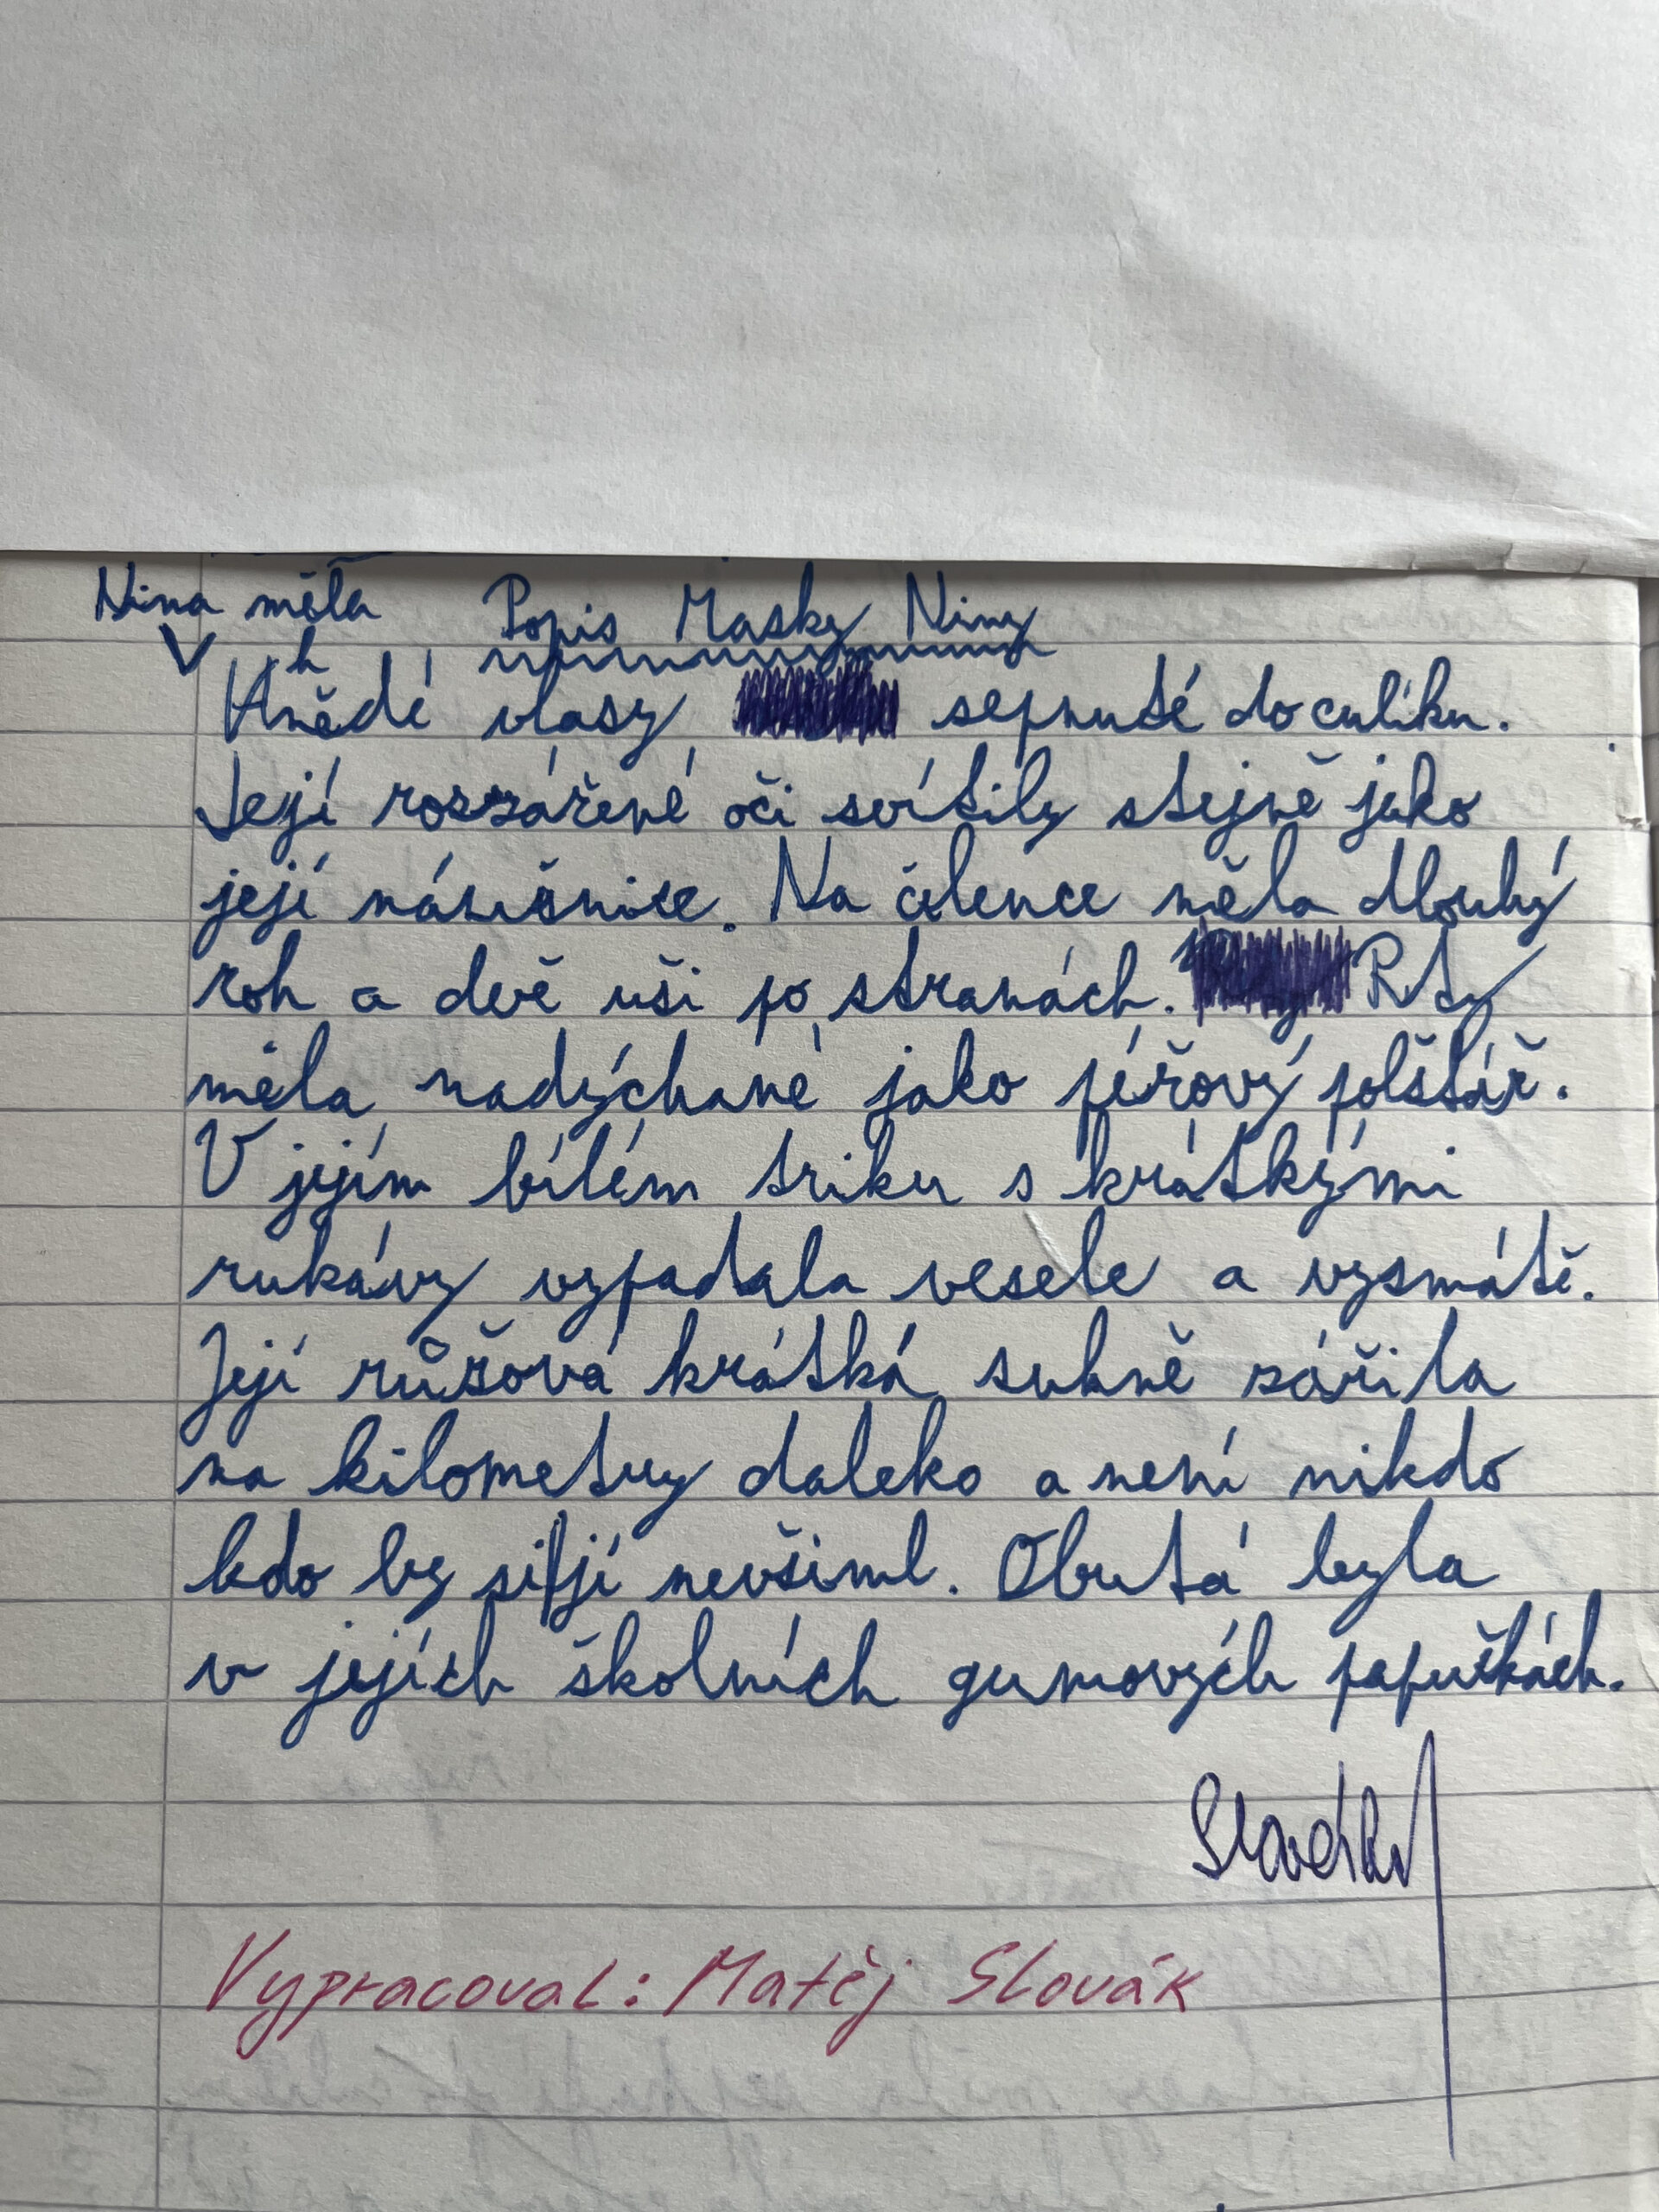 Nina měla Popis Masky Niny
V h
Hnědé vlasy sepnuté do culíku.
Její rozzářené oči svítily stejně jako
její náušnice. Na čelence měla dlouhý
roh a dvě uši po stranách. Rty
měla nadýchané jako péřový polštář.
V jejím bílém triku s krátkými
rukávy vypadala vesele a vysmátě.
Její růžová krátká sukně zářila
na kilometry daleko a není nikdo
kdo by si jí nevšiml. Obutá byla
v jejích školních gumových papučkách.
Vypracoval: Matěj Slovák